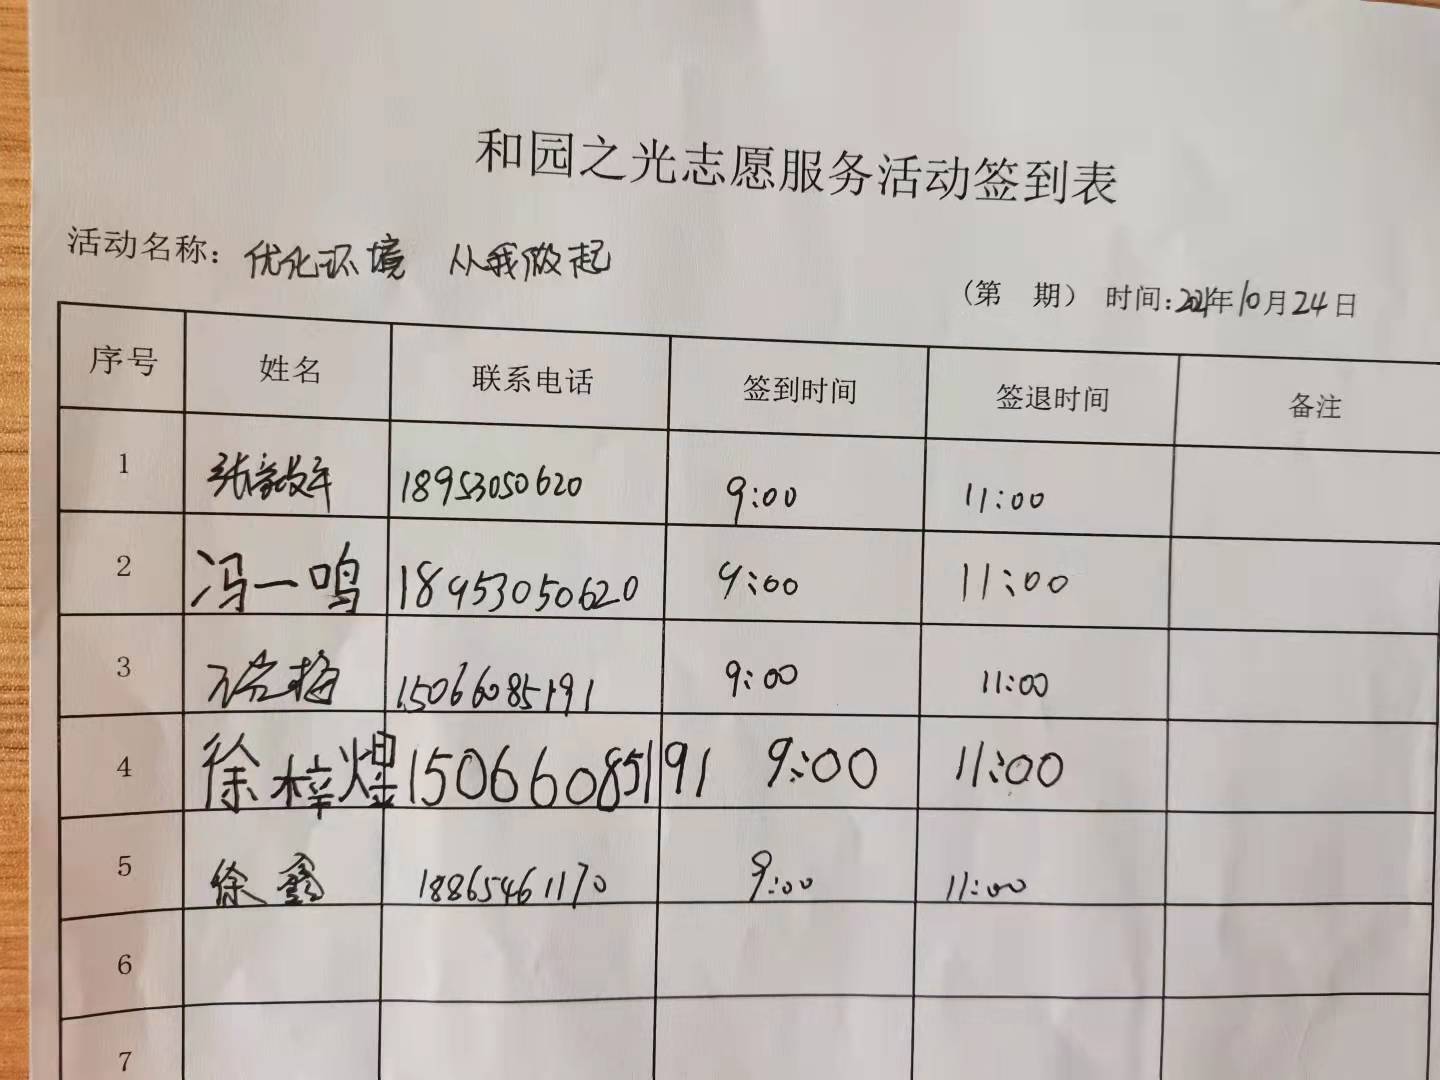 和园之光志愿服务活动签到表
活动名称：优化环境 从我做起
（第 期） 时间：2021年10月24日
序号 姓名 联系电话 签到时间 签退时间 备注
1 18953050620 9:00 11:00
2 冯一鸣 18953050620 9:00 11:00
3 15066085191 9:00 11:00
4 徐梓煜 15066085191 9:00 11:00
5 徐鑫 18865461170 9:00 11:00
6
7